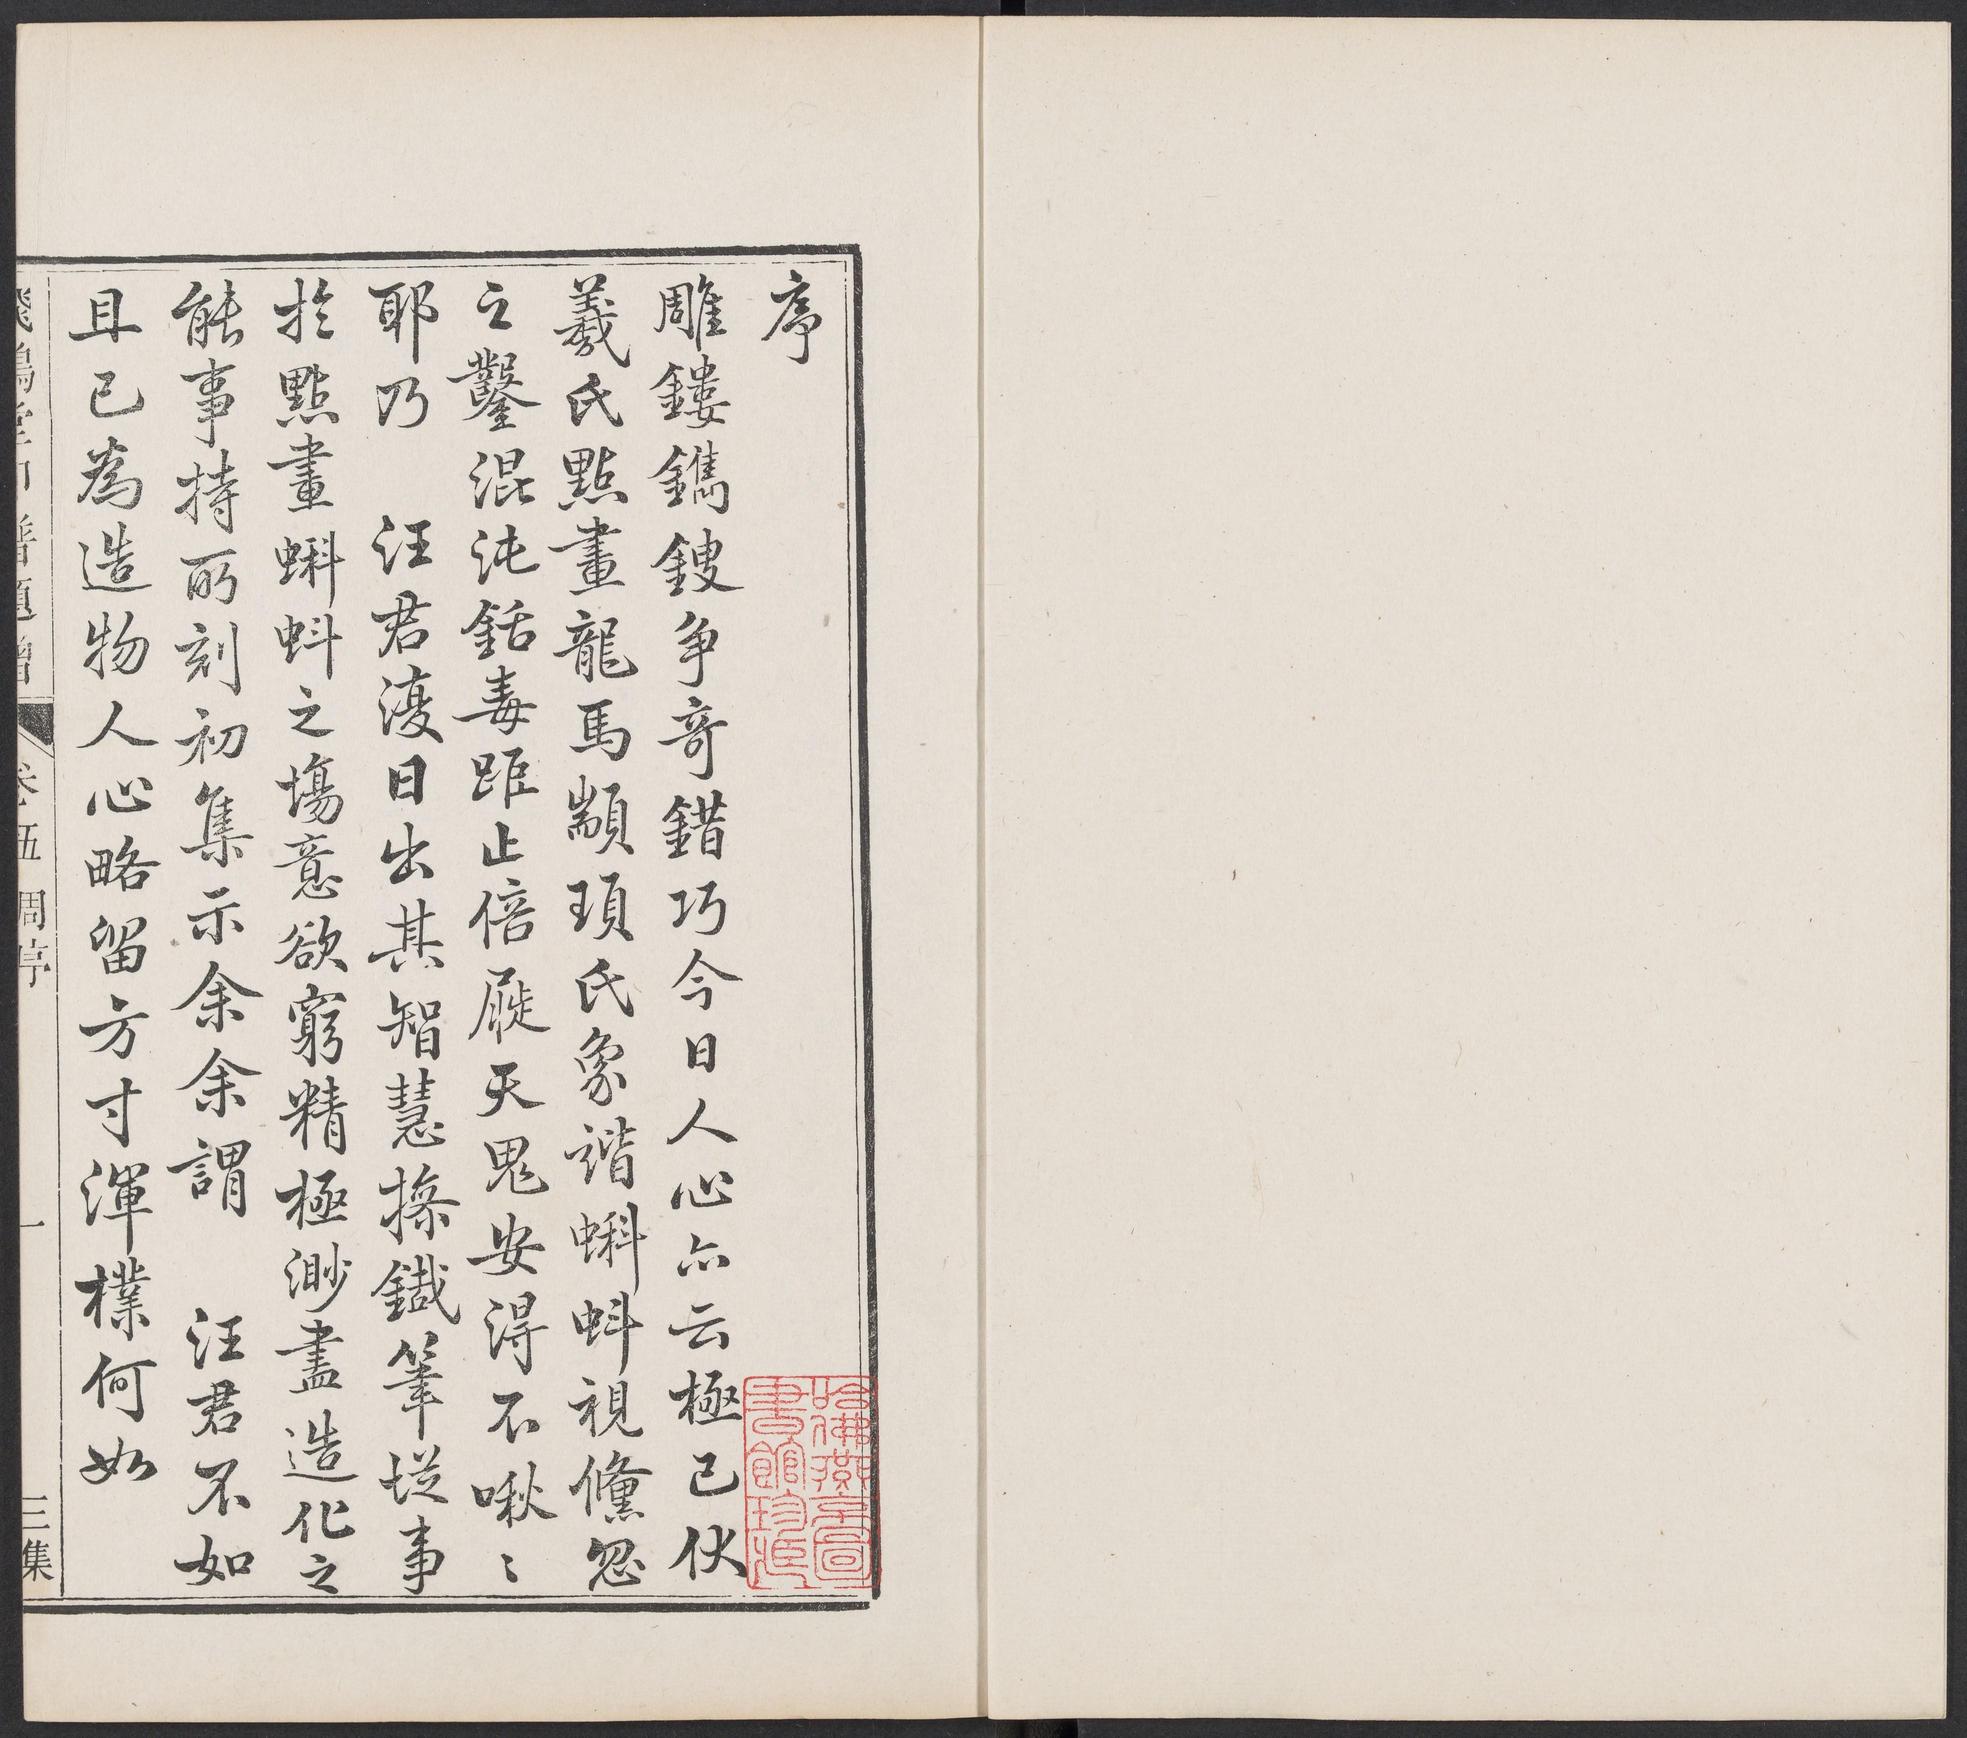 序
雕鏤鐫鎪争奇錯巧今日人心亦云極已伏
羲氏點畫龍馬顓頊氏象諧蝌蚪視儵忽
之鑿混沌銛毒距止倍屣天鬼安得不啾〻
耶乃　汪君復日出其智慧操鐵筆從事
於點畫蝌蚪之塲意欲窮精極渺盡造化之
能事持所刻初集示余余謂　汪君不如
且已為造物人心略留方寸渾樸何如
飛鴻堂印譜題贈 卷五 周序 一 三集
哈佛燕京圖
書館珍藏